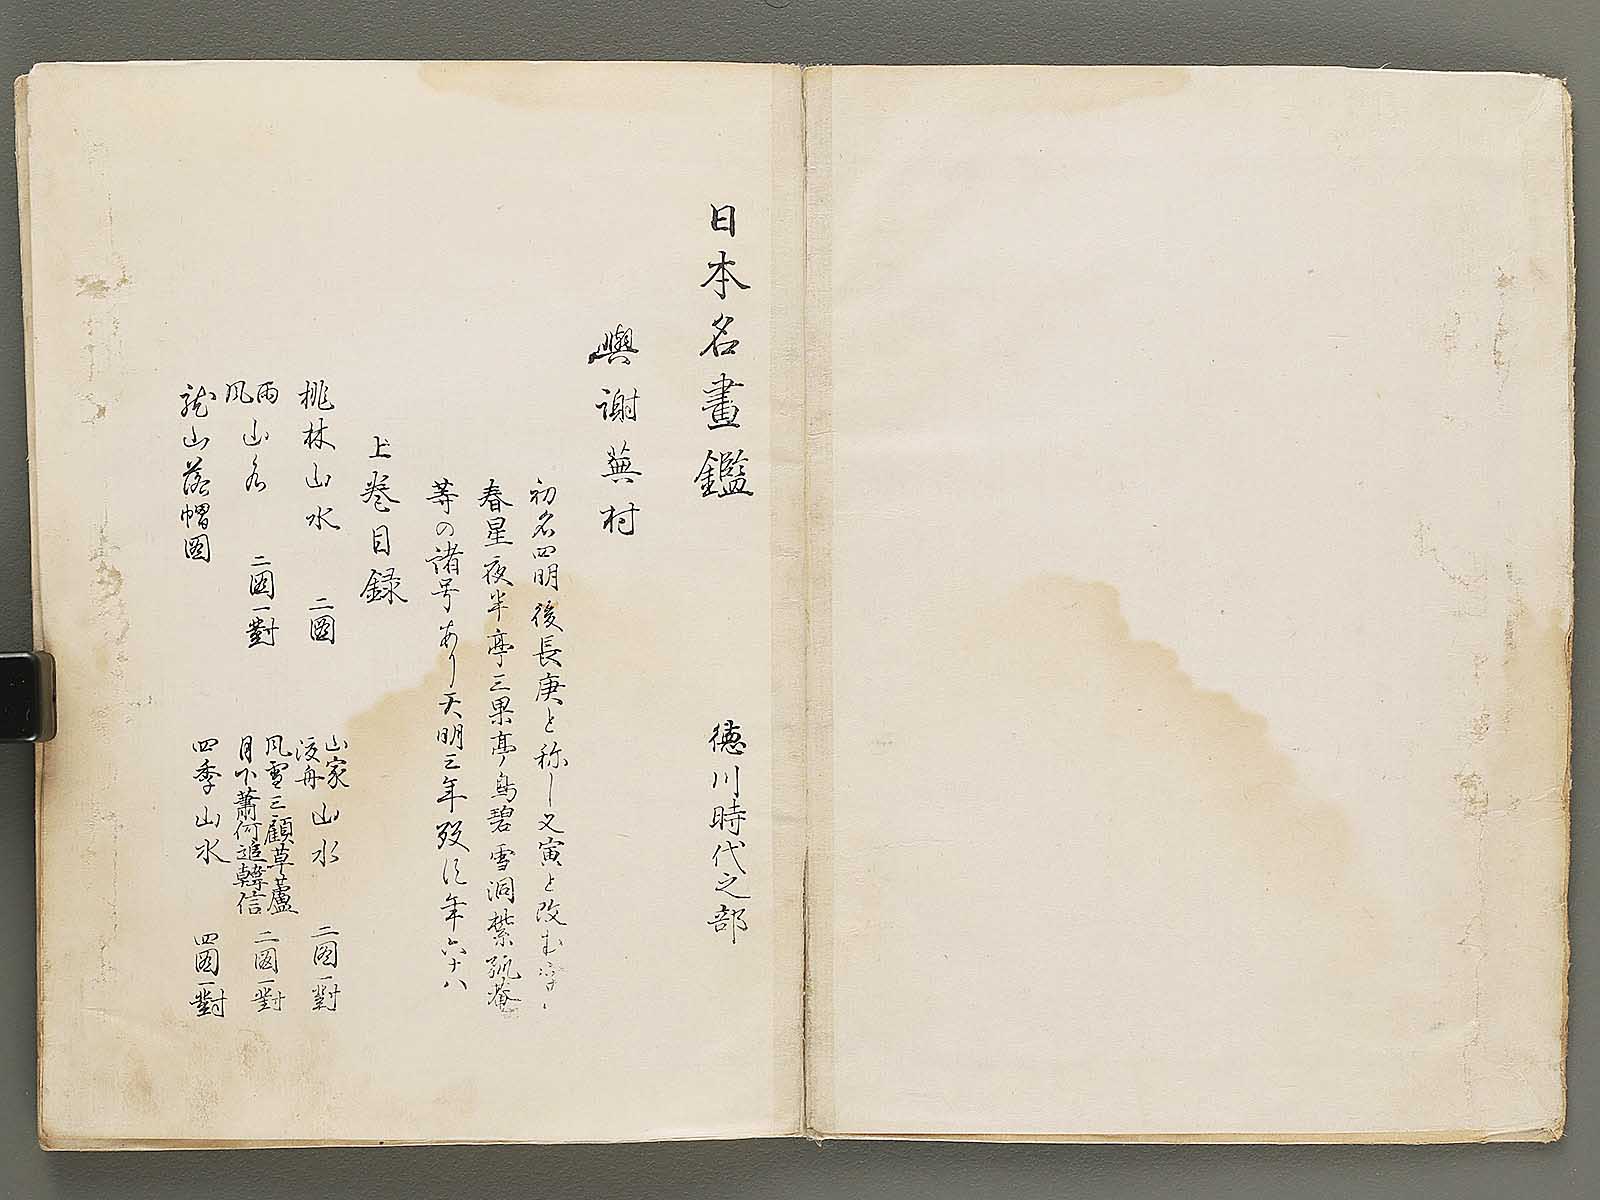 日本名畫鑑 徳川時代之部
與謝蕪村
初名四明後長庚と称し又寅と改む
春星夜半亭三果亭 碧雪洞紫狐菴
等の諸号あり天明三年歿 年六十八
上巻目録
桃林山水 二図
山家 渓舟 山水 二図一對
雨 風 山水 二図一對
風雪三顧草蘆 月下蕭何追韓信 二図一對
龍山落帽図
四季山水 四図一對